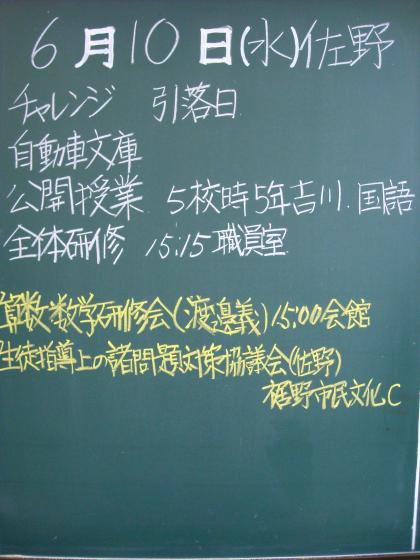 6月10日(水)佐野
チャレンジ 引落日
自動車文庫
公開授業 5校時5年吉川 国語
全体研修 15:15 職員室
算数・数学研修会(渡邉義)15:00会館
生徒指導上の諸問題対策協議会(佐野)
裾野市民文化C